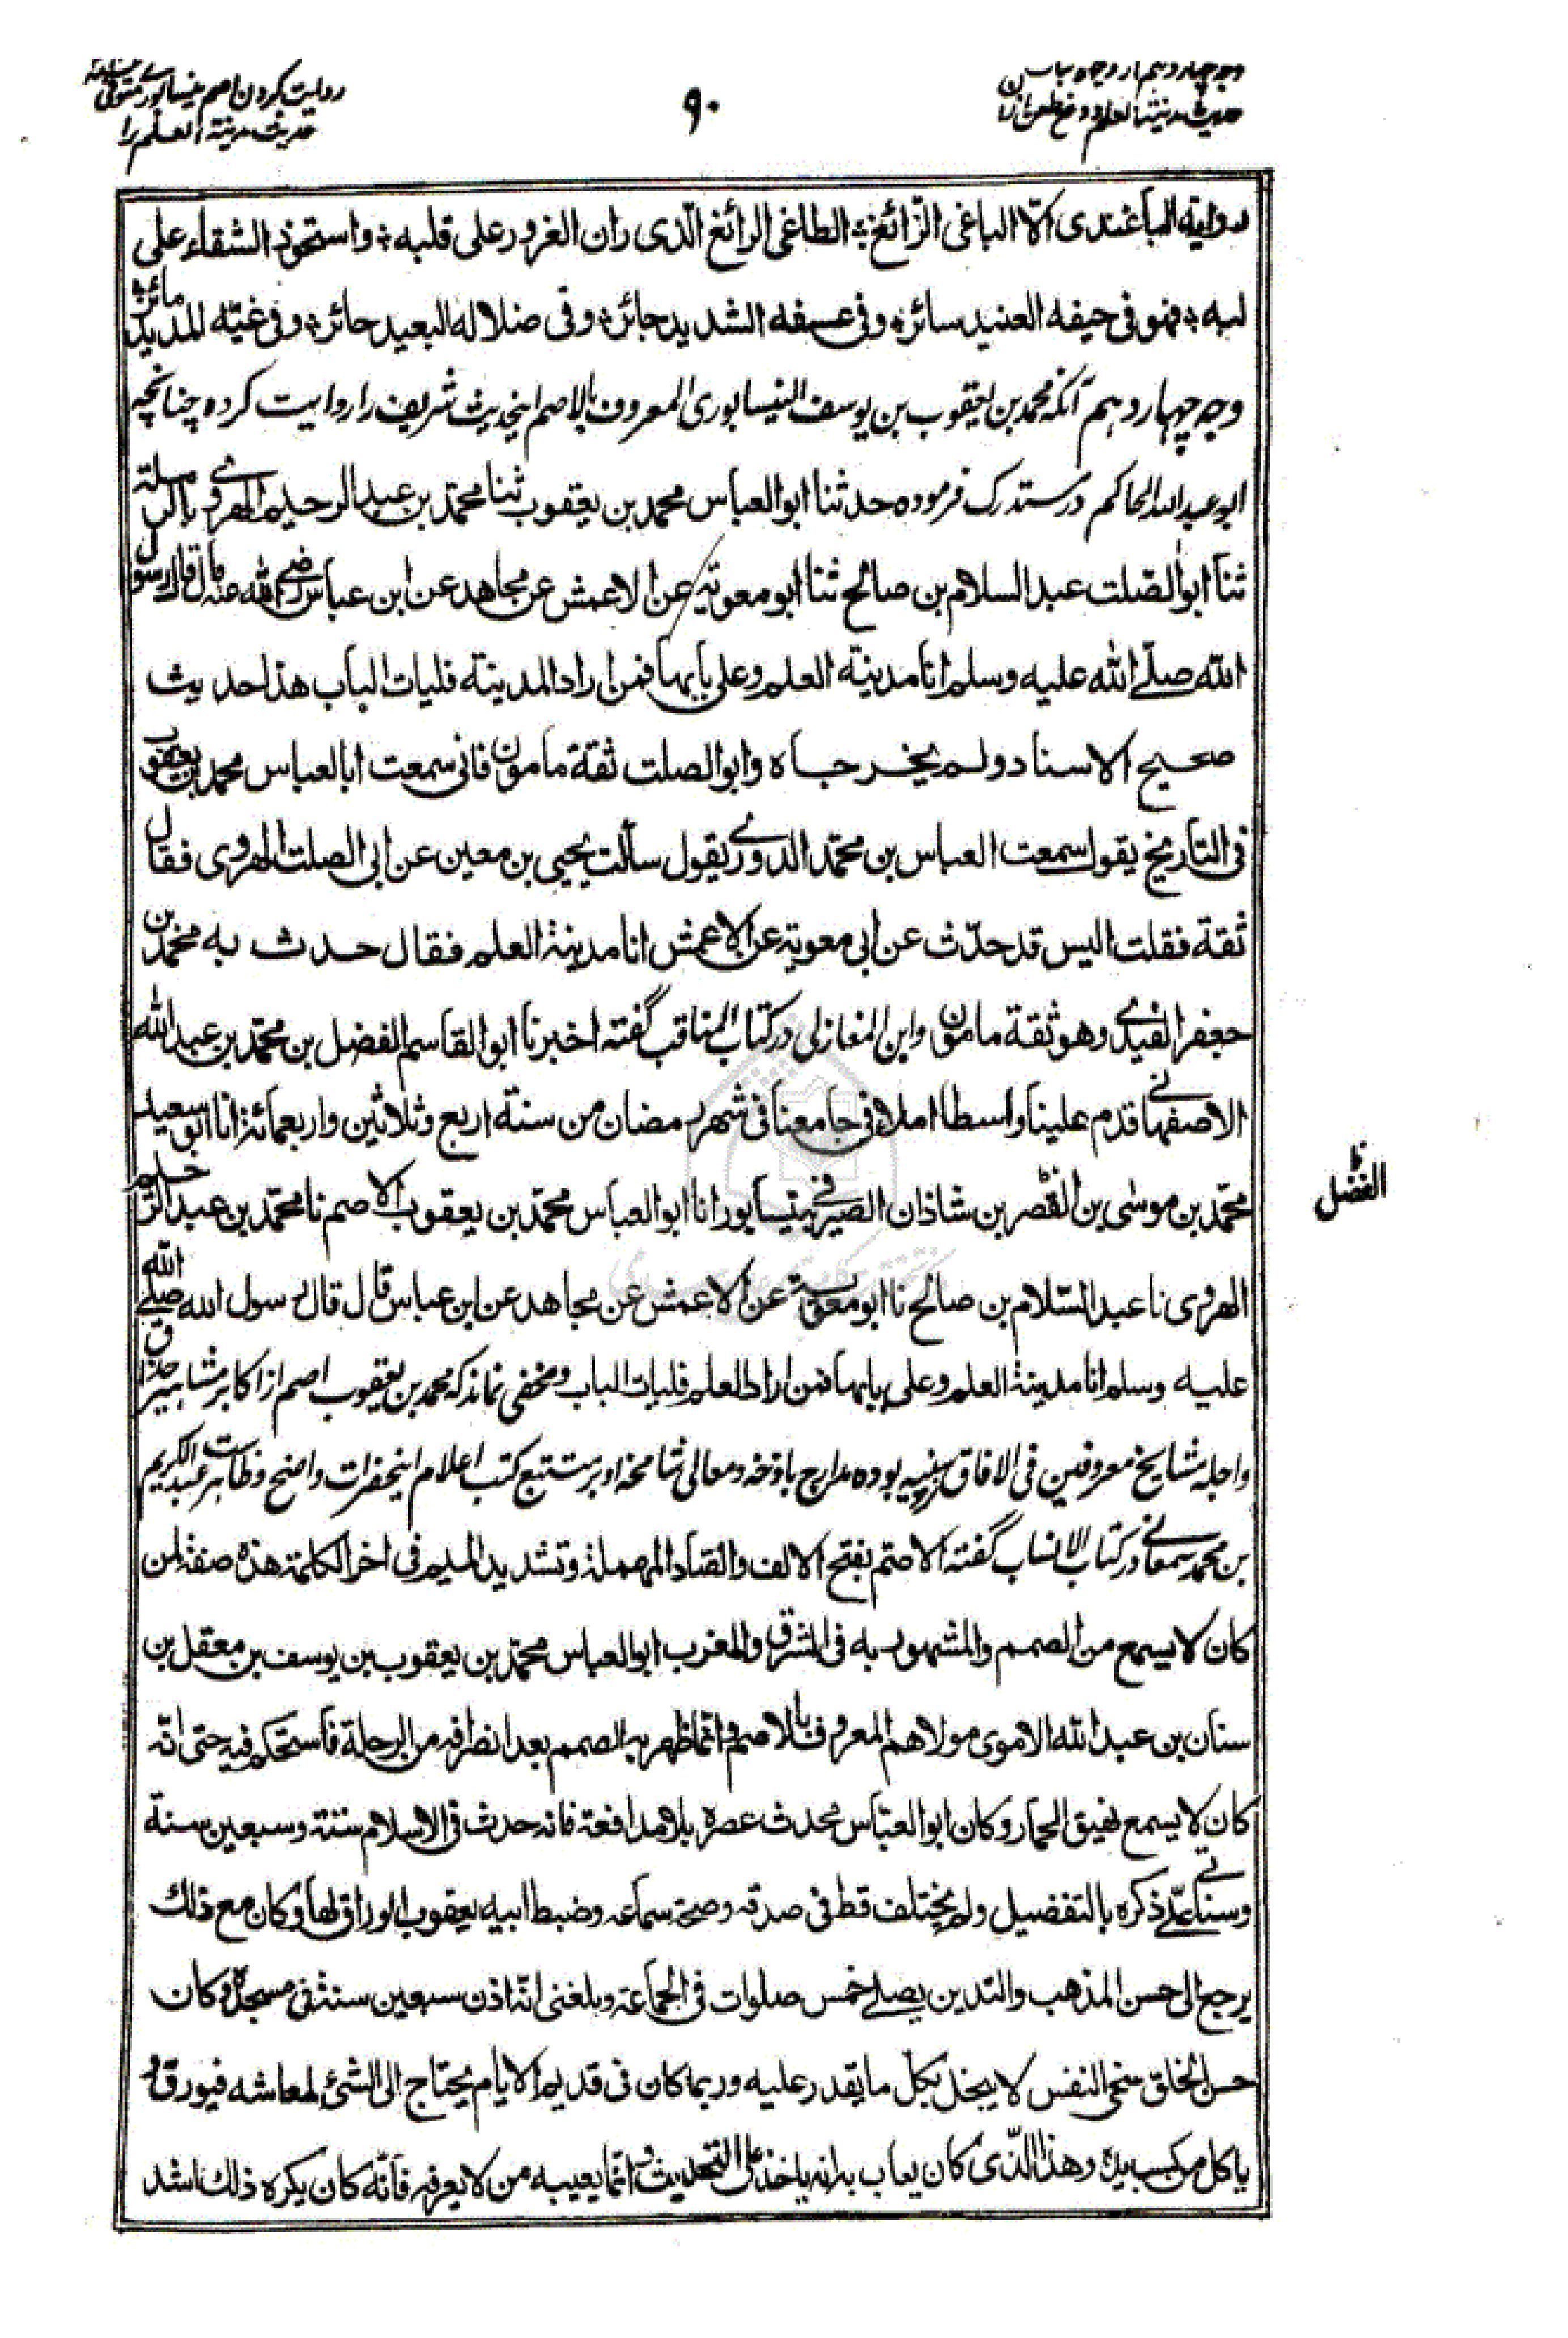 وجه چهاردهم از وجوه اثبات
حدیث مدینة العلم و دفع طعن از آن
٩٠
روایت کردن اصم نیسابوری متوفی
حدیث مدینة العلم را
رواية الباغندی الا الباغی الزائغ ؛ الطاغی الرائغ الّذی ران الغرور علی قلبه ؛ واستحوذ الشقاء علی
لبه ؛ فهو فی حیفه العنید سائر ؛ وفی عسفه الشدید جائر ؛ وفی ضلاله البعید حائر ؛ وفی غیّه المدید مائر ؛
وجه چهاردهم آنکه محمد بن یعقوب بن یوسف النیسابوری المعروف بالاصم اینحدیث شریف را روایت کرده چنانچه
ابو عبد الله الحاکم در مستدرک فرموده حدثنا ابو العباس محمد بن یعقوب ثنا محمّد بن عبد الرحیم الهروی بالرملة
ثنا ابو الصّلت عبد السلام بن صالح ثنا ابو معویة عن الاعمش عن مجاهد عن ابن عباس رضی الله عنه قال قال رسول
الله صلّی الله علیه وسلم انا مدینة العلم وعلی بابها فمن اراد المدینة فلیات الباب هذا حدیث
صحیح الاسناد ولم یخرجاه وابو الصلت ثقة مامون فانی سمعت ابا العباس محمد بن یعقوب
فی التاریخ یقول سمعت العباس بن محمّد الدوری یقول سألت یحیی بن معین عن ابی الصلت الهروی فقال
ثقة فقلت الیس قد حدّث عن ابی معویة عن الاعمش انا مدینة العلم فقال حدث به محمد بن
جعفر الفیدی وهو ثقة مامون وابن المغازلی در کتاب المناقب گفته اخبرنا ابو القاسم المفضل بن محمّد بن عبد الله
الاصفهانی قدم علینا واسطا املاء فی جامعنا فی شهر رمضان من سنة اربع وثلاثین واربعمائة انا ابو سعید
محمّد بن موسی بن النضر بن شاذان الصیرفی بنیسابور انا ابو العباس محمّد بن یعقوب الاصم نا محمّد بن عبد الرحیم
الفضل ظ
الهروی نا عبد السّلام بن صالح نا ابو معویة عن الاعمش عن مجاهد عن ابن عباس قال قال رسول الله صلی الله
علیه وسلم انا مدینة العلم وعلی بابها فمن اراد العلم فلیات الباب ومخفی نماند که محمد بن یعقوب اصم از اکابر مشاهیر حذاق
واجله مشایخ معروفین فی الافاق سنیه بوده مدارج باذخه ومعالی شامخه او بر متتبع کتب اعلام اینحضرات واضح وظاهرست عبد الکریم
بن محمد سمعانی در کتاب الانساب گفته الاصم بفتح الالف والصّاد المهملة وتشدید المیم فی اخر الکلمة هذه صفة لمن
کان لا یسمع من الصمم والمشهور به فی الشرق والغرب ابو العباس محمّد بن یعقوب بن یوسف بن معقل بن
سنان بن عبد الله الاموی مولاهم المعروف بالاصم وانما ظهر به الصمم بعد انصرافه من الرحلة فاستحکم فیه حتی انّه
کان لا یسمع نهیق الحمار وکان ابو العبّاس محدث عصره بلا مدافعة فانه حدث فی الاسلام ستة وسبعین سنة
وسناتی علی ذکره بالتفصیل ولم یختلف قط فی صدقه وصحة سماعه وضبط ابیه یعقوب الوراق لها وکان مع ذلک
یرجع الی حسن المذهب والتدین یصلی خمس صلوات فی الجماعة وبلغنی انّه اذن سبعین سنة فی مسجده وکان
حسن الخلق سخی النفس لا یبخل بکل ما یقدر علیه وربما کان فی قدیم الایام یحتاج الی الشیٔ لمعاشه فیورق و
یاکل من کسب یده وهذا الّذی کان یعاب به انه یاخذ علی التحدیث وانّما یعیبه من لا یعرفه فانّه کان یکره ذلک اشد